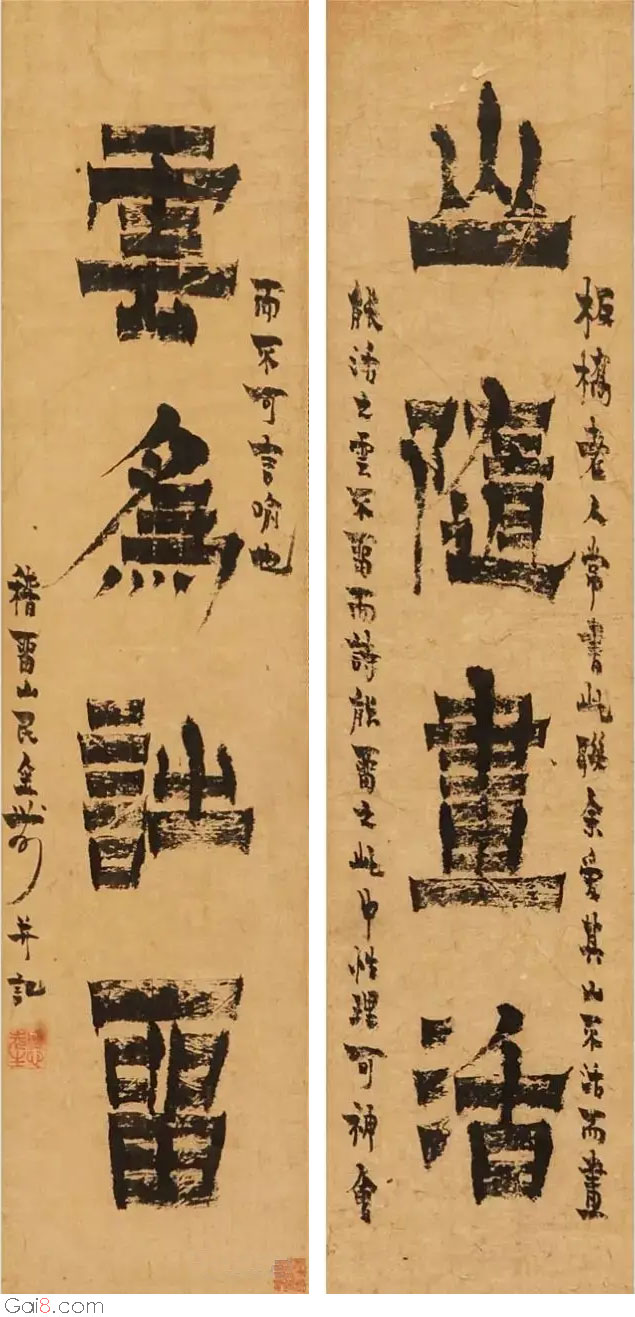 板橋老人常書此聯余愛其山不活而畫
山隨畫活
能活之雲不留而詩能留之此中性理可神會
而不可言喻也
雲爲詩留
稽留山民金農并記
Gai8.com